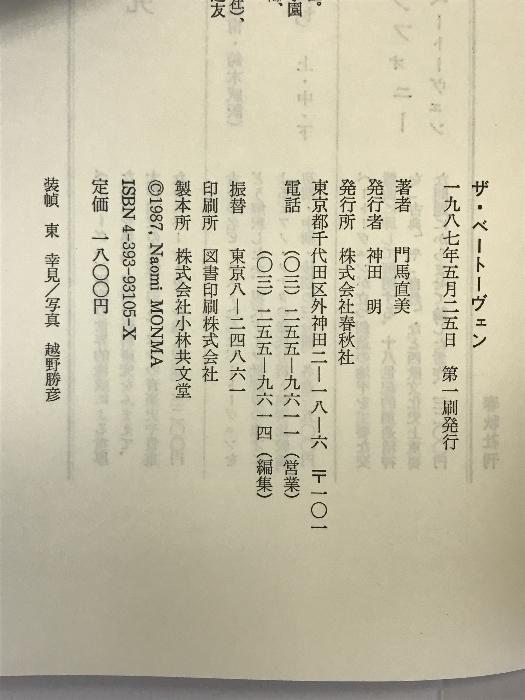 ザ・ベートーヴェン
一九八七年五月二五日　第一刷発行
著者　門馬直美
発行者　神田　明
発行所　株式会社春秋社
東京都千代田区外神田二―一八―六　〒一〇一
電話　（〇三）二五五―九六一一（営業）
（〇三）二五五―九六一四（編集）
振替　東京八―二四八六一
印刷所　図書印刷株式会社
製本所　株式会社小林共文堂
©1987, Naomi MONMA
ISBN 4-393-93105-X
定価　一八〇〇円
装幀　東　幸見／写真　越野勝彦